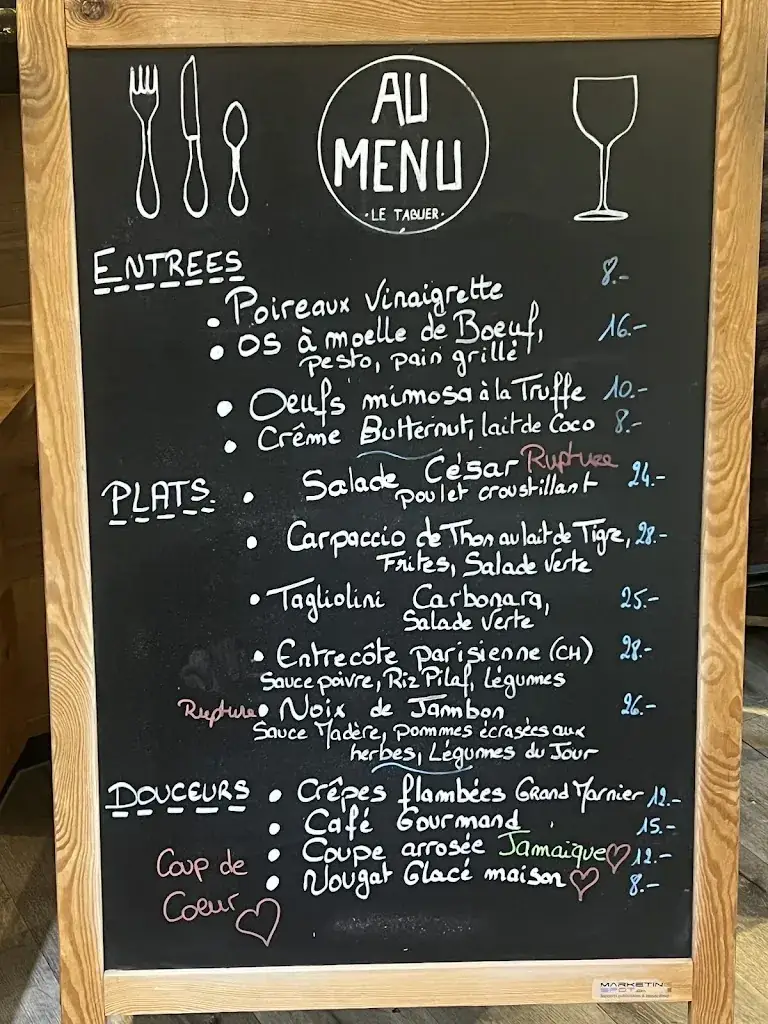 AU
MENU
· LE TABLIER ·
ENTREES
• Poireaux Vinaigrette 8.-
• Os à moelle de Boeuf, 16.-
pesto, pain grillé
• Oeufs mimosa à la Truffe 10.-
• Crême Butternut, lait de Coco 8.-
PLATS
• Salade César Rupture 24.-
poulet croustillant
• Carpaccio de Thon au lait de Tigre, 28.-
Frites, Salade Verte
• Tagliolini Carbonara, 25.-
Salade Verte
• Entrecôte parisienne (CH) 28.-
Sauce poivre, Riz Pilaf, Légumes
Rupture • Noix de Jambon 26.-
Sauce Madère, pommes écrasées aux
herbes, Légumes du Jour
DOUCEURS • Crêpes flambées Grand Marnier 12.-
• Café Gourmand 15.-
• Coupe arrosée Jamaïque 12.-
• Nougat Glacé maison 8.-
Coup de
Coeur
MARKETIN